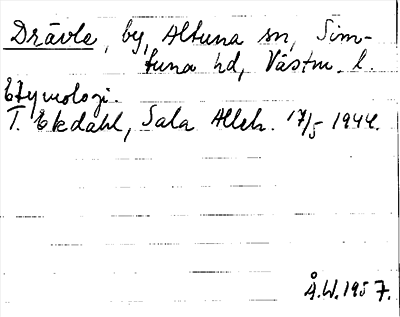 Drävle, by, Altuna sn, Sim-
tuna hd, Västm. l.
Etymologi.
T. Ekdahl, Sala Alleh. 17/5 1944.
Å.W. 1957.